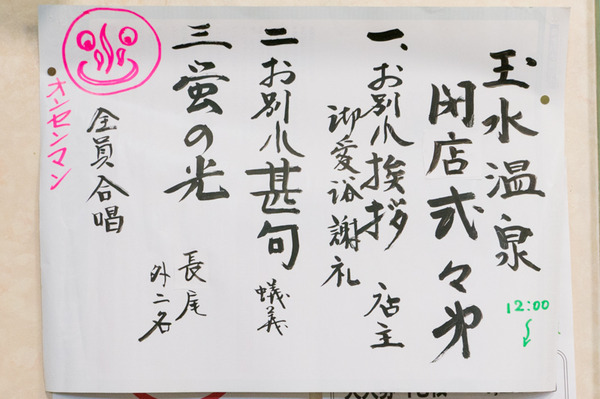 玉水温泉
閉店式々第
12:00
一、お別れ挨拶 店主
御愛浴謝礼
二 お別れ甚句 蟻義
三 蛍の光 長尾
外二名
全員合唱
オンセンマン